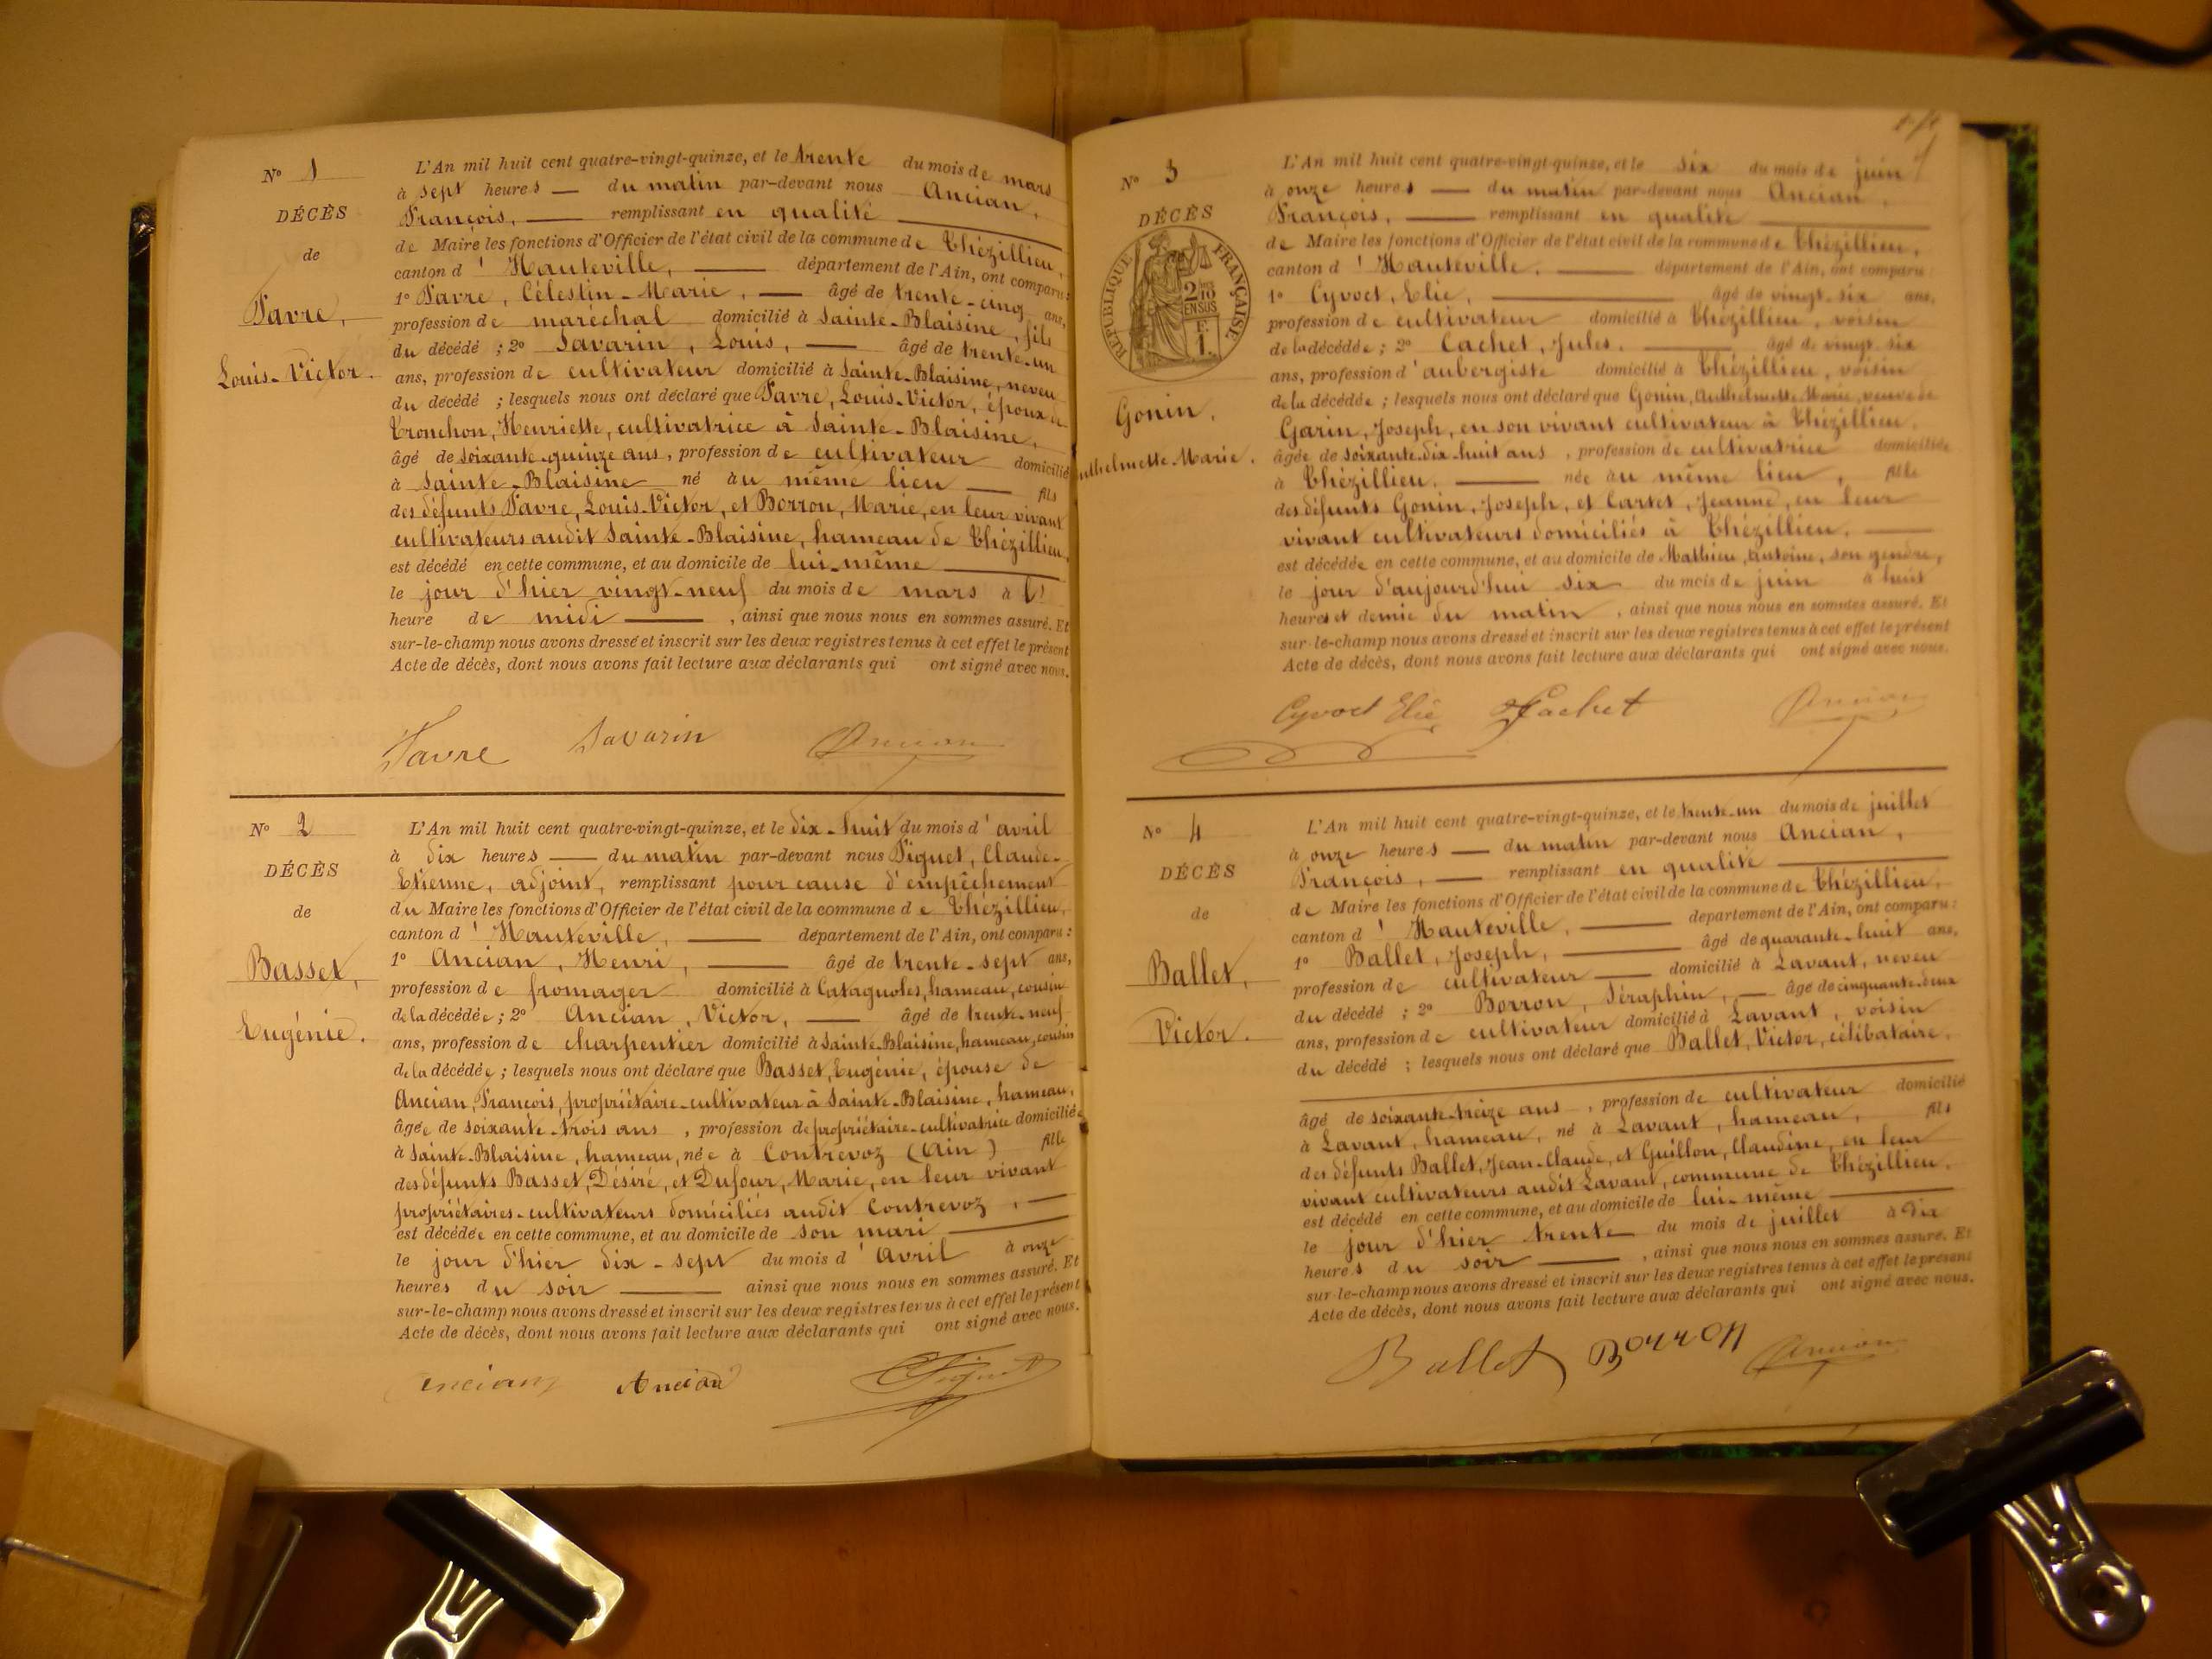 N° 1
DÉCÈS
de
Favre,
Louis-Victor.
L'An mil huit cent quatre-vingt-quinze, et le trente du mois de mars
à sept heures — du matin par-devant nous Ancian,
François, — remplissant en qualité
de Maire les fonctions d'Officier de l'état civil de la commune de Thézillieu,
canton d'Hauteville, — département de l'Ain, ont comparu :
1° Favre, Célestin-Marie, — âgé de trente-cinq ans,
profession de maréchal domicilié à Sainte-Blaisine, fils
du décédé ; 2° Savarin, Louis, — âgé de trente-un
ans, profession de cultivateur domicilié à Sainte-Blaisine, neveu
du décédé ; lesquels nous ont déclaré que Favre, Louis-Victor, époux de
Tronchon, Henriette, cultivatrice à Sainte-Blaisine,
âgé de soixante-quinze ans, profession de cultivateur domicilié
à Sainte-Blaisine né au même lieu — fils
des défunts Favre, Louis-Victor, et Borron, Marie, en leur vivant
cultivateurs audit Sainte-Blaisine, hameau de Thézillieu,
est décédé en cette commune, et au domicile de lui-même
le jour d'hier vingt-neuf du mois de mars à l'
heure de midi —, ainsi que nous nous en sommes assuré. Et
sur-le-champ nous avons dressé et inscrit sur les deux registres tenus à cet effet le présent
Acte de décès, dont nous avons fait lecture aux déclarants qui ont signé avec nous.
Favre Savarin Ancian
N° 2
DÉCÈS
de
Basset,
Eugénie.
L'An mil huit cent quatre-vingt-quinze, et le dix-huit du mois d'avril
à dix heures — du matin par-devant nous Piguet, Claude-
Etienne, adjoint, remplissant pour cause d'empêchement
du Maire les fonctions d'Officier de l'état civil de la commune de Thézillieu,
canton d'Hauteville, — département de l'Ain, ont comparu :
1° Ancian, Henri, — âgé de trente-sept ans,
profession de fromager domicilié à Catagnoles, hameau, cousin
de la décédée ; 2° Ancian, Victor, — âgé de trente-neuf
ans, profession de charpentier domicilié à Sainte-Blaisine, hameau, cousin
de la décédée ; lesquels nous ont déclaré que Basset, Eugénie, épouse de
Ancian, François, propriétaire-cultivateur à Sainte-Blaisine, hameau,
âgée de soixante-trois ans, profession de propriétaire-cultivatrice domiciliée
à Sainte-Blaisine, hameau, née à Contrevoz (Ain) fille
des défunts Basset, Désiré, et Dufour, Marie, en leur vivant
propriétaires-cultivateurs domiciliés audit Contrevoz, —
est décédée en cette commune, et au domicile de son mari
le jour d'hier dix-sept du mois d'Avril à onze
heures du soir — ainsi que nous nous en sommes assuré. Et
sur-le-champ nous avons dressé et inscrit sur les deux registres tenus à cet effet le présent
Acte de décès, dont nous avons fait lecture aux déclarants qui ont signé avec nous.
Ancian Ancian Piguet
N° 3
DÉCÈS
RÉPUBLIQUE FRANÇAISE
2/10
EN SUS
F.
1.
Gonin,
nthelmette-Marie.
L'An mil huit cent quatre-vingt-quinze, et le six du mois de juin
à onze heures — du matin par-devant nous Ancian,
François, — remplissant en qualité
de Maire les fonctions d'Officier de l'état civil de la commune de Thézillieu,
canton d'Hauteville, — département de l'Ain, ont comparu :
1° Cyvoct, Elie, — âgé de vingt-six ans,
profession de cultivateur domicilié à Thézillieu, voisin
de la décédée ; 2° Cachet, Jules. — âgé de vingt-six
ans, profession d'aubergiste domicilié à Thézillieu, voisin
de la décédée ; lesquels nous ont déclaré que Gonin, Anthelmette-Marie, veuve de
Garin, Joseph, en son vivant cultivateur à Thézillieu,
âgée de soixante-dix-huit ans, profession de cultivatrice domiciliée
à Thézillieu, — née au même lieu, fille
des défunts Gonin, Joseph, et Cartet, Jeanne, en leur
vivant cultivateurs domiciliés à Thézillieu, —
est décédée en cette commune, et au domicile de Mathieu, Antoine, son gendre,
le jour d'aujourd'hui six du mois de juin à huit
heures et demie du matin, ainsi que nous nous en sommes assuré. Et
sur-le-champ nous avons dressé et inscrit sur les deux registres tenus à cet effet le présent
Acte de décès, dont nous avons fait lecture aux déclarants qui ont signé avec nous.
Cyvoct Elie Cachet Ancian
N° 4
DÉCÈS
de
Ballet,
Victor.
L'An mil huit cent quatre-vingt-quinze, et le trente-un du mois de juillet
à onze heures — du matin par-devant nous Ancian,
François, — remplissant en qualité
de Maire les fonctions d'Officier de l'état civil de la commune de Thézillieu,
canton d'Hauteville, — département de l'Ain, ont comparu :
1° Ballet, Joseph, — âgé de quarante-huit ans,
profession de cultivateur — domicilié à Lavant, neveu
du décédé ; 2° Borron, Séraphin, — âgé de cinquante-deux
ans, profession de cultivateur domicilié à Lavant, voisin
du décédé ; lesquels nous ont déclaré que Ballet, Victor, célibataire,
âgé de soixante-treize ans, profession de cultivateur domicilié
à Lavant, hameau, né à Lavant, hameau, fils
des défunts Ballet, Jean-Claude, et Guillon, Claudine, en leur
vivant cultivateurs audit Lavant, commune de Thézillieu,
est décédé en cette commune, et au domicile de lui-même
le jour d'hier trente du mois de juillet à dix
heures du soir —, ainsi que nous nous en sommes assuré. Et
sur-le-champ nous avons dressé et inscrit sur les deux registres tenus à cet effet le présent
Acte de décès, dont nous avons fait lecture aux déclarants qui ont signé avec nous.
Ballet Borron Ancian